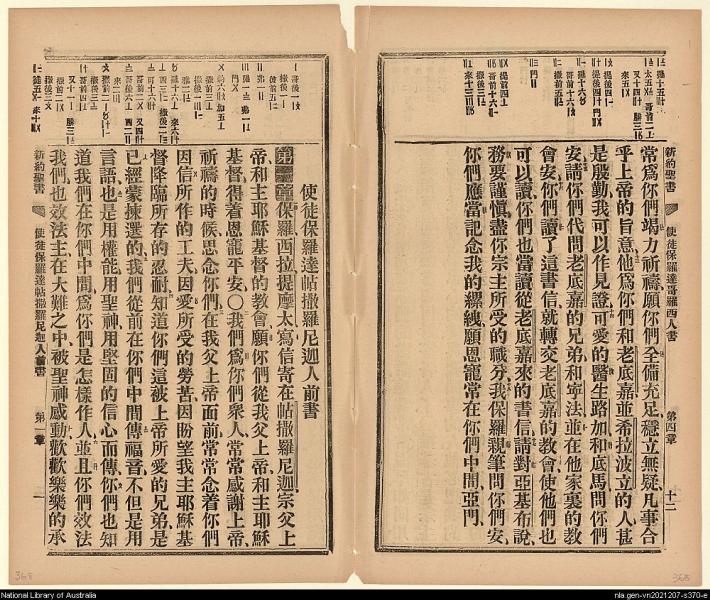 新約聖書
使徒保羅達哥羅西人書
第四章
十二
常爲你們竭力祈禱願你們全備充足穩立無疑凡事合
乎上帝的旨意他爲你們和老底嘉並希拉波立的人甚
是殷勤我可以作見證可愛的醫生路加和底馬問你們
安請你們代問老底嘉的兄弟和寧法並在他家裏的教
會安你們讀了這書信就轉交老底嘉的教會使他們也
可以讀你們也當讀從老底嘉來的書信請對亞基布說
務要謹慎盡你宗主所受的職分我保羅親筆問你們安
你們應當記念我的縲絏願恩寵常在你們中間亞門
使徒保羅達帖撒羅尼迦人前書
第一章保羅西拉提摩太寫信寄在帖撒羅尼迦宗父上
帝和主耶穌基督的教會願你們從我父上帝和主耶穌
基督得着恩寵平安〇我們爲你們衆人常常感謝上帝
祈禱的時候思念你們在我父上帝面前常常念着你們
因信所作的工夫因愛所受的勞苦因盼望我主耶穌基
督降臨所存的忍耐知道你們這被上帝所愛的兄弟是
已經蒙揀選的我們從前在你們中間傳福音不但是用
言語也是用權能用聖神用堅固的信心而傳你們也知
道我們在你們中間爲你們是怎樣作人並且你們效法
我們也效法主在大難之中被聖神感動歡歡樂樂的承
新約聖書
使徒保羅達帖撒羅尼迦人前書
第一章
一
368
368
National Library of Australia
nla.gen-vn2021207-s370-e